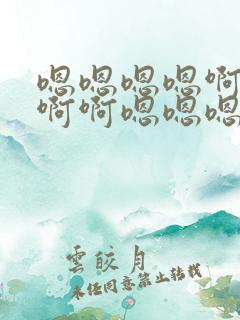 嗯嗯嗯嗯啊
啊啊嗯嗯嗯
雲皎月
未经同意禁止转载